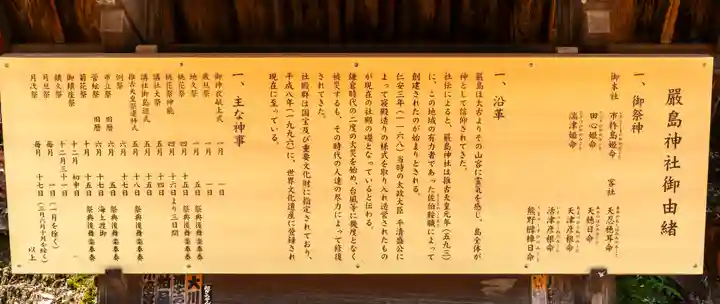 嚴島神社御由緒
一、御祭神
御本社 市杵島姫命
田心姫命
湍津姫命
客社 天忍穂耳命
天穂日命
天津彦根命
活津彦根命
熊野櫲樟日命
一、沿革
嚴島は太古よりその山容に霊気を感じ、島全体が
神として信仰されてきた。
社伝によると、嚴島神社は推古天皇元年（五九三）
に、この地域の有力者であった佐伯鞍職によって
創建されたのが始まりとされる。
仁安三年（一一六八）当時の太政大臣 平清盛公に
よって寝殿造りの様式を取り入れ造営されたもの
が現在の社殿の礎となっていると伝わる。
鎌倉時代の二度の火災を始め、台風等に幾度となく
被災するも、その時代の人達の尽力によって修復
されてきた。
社殿群は国宝及び重要文化財に指定されており、
平成八年（一九九六）に、世界文化遺産に登録され
現在に至っている。
一、主な神事
御神衣献上式 一月 一日
歳旦祭 一月 一日
地久祭 一月 五日 祭典後舞楽奉奏
桃花祭 四月 十五日 祭典後舞楽奉奏
桃花祭神能 四月 十六日より三日間
講社大祭 五月 十四日
講社御島廻式 五月 十五日
推古天皇祭遙拝式 五月 十八日 祭典後舞楽奉奏
例祭 六月 十七日
市立祭 旧暦 七月 五日 祭典後舞楽奉奏
管絃祭 旧暦 六月 十七日 海上渡御
菊花祭 十月 十五日 祭典後舞楽奉奏
御鎮座祭 十二月 初申日
鎮火祭 十二月 三十一日
月旦祭 毎月 一日 （一月を除く）
月次祭 毎月 十七日 （三月六月十月を除く）
以上